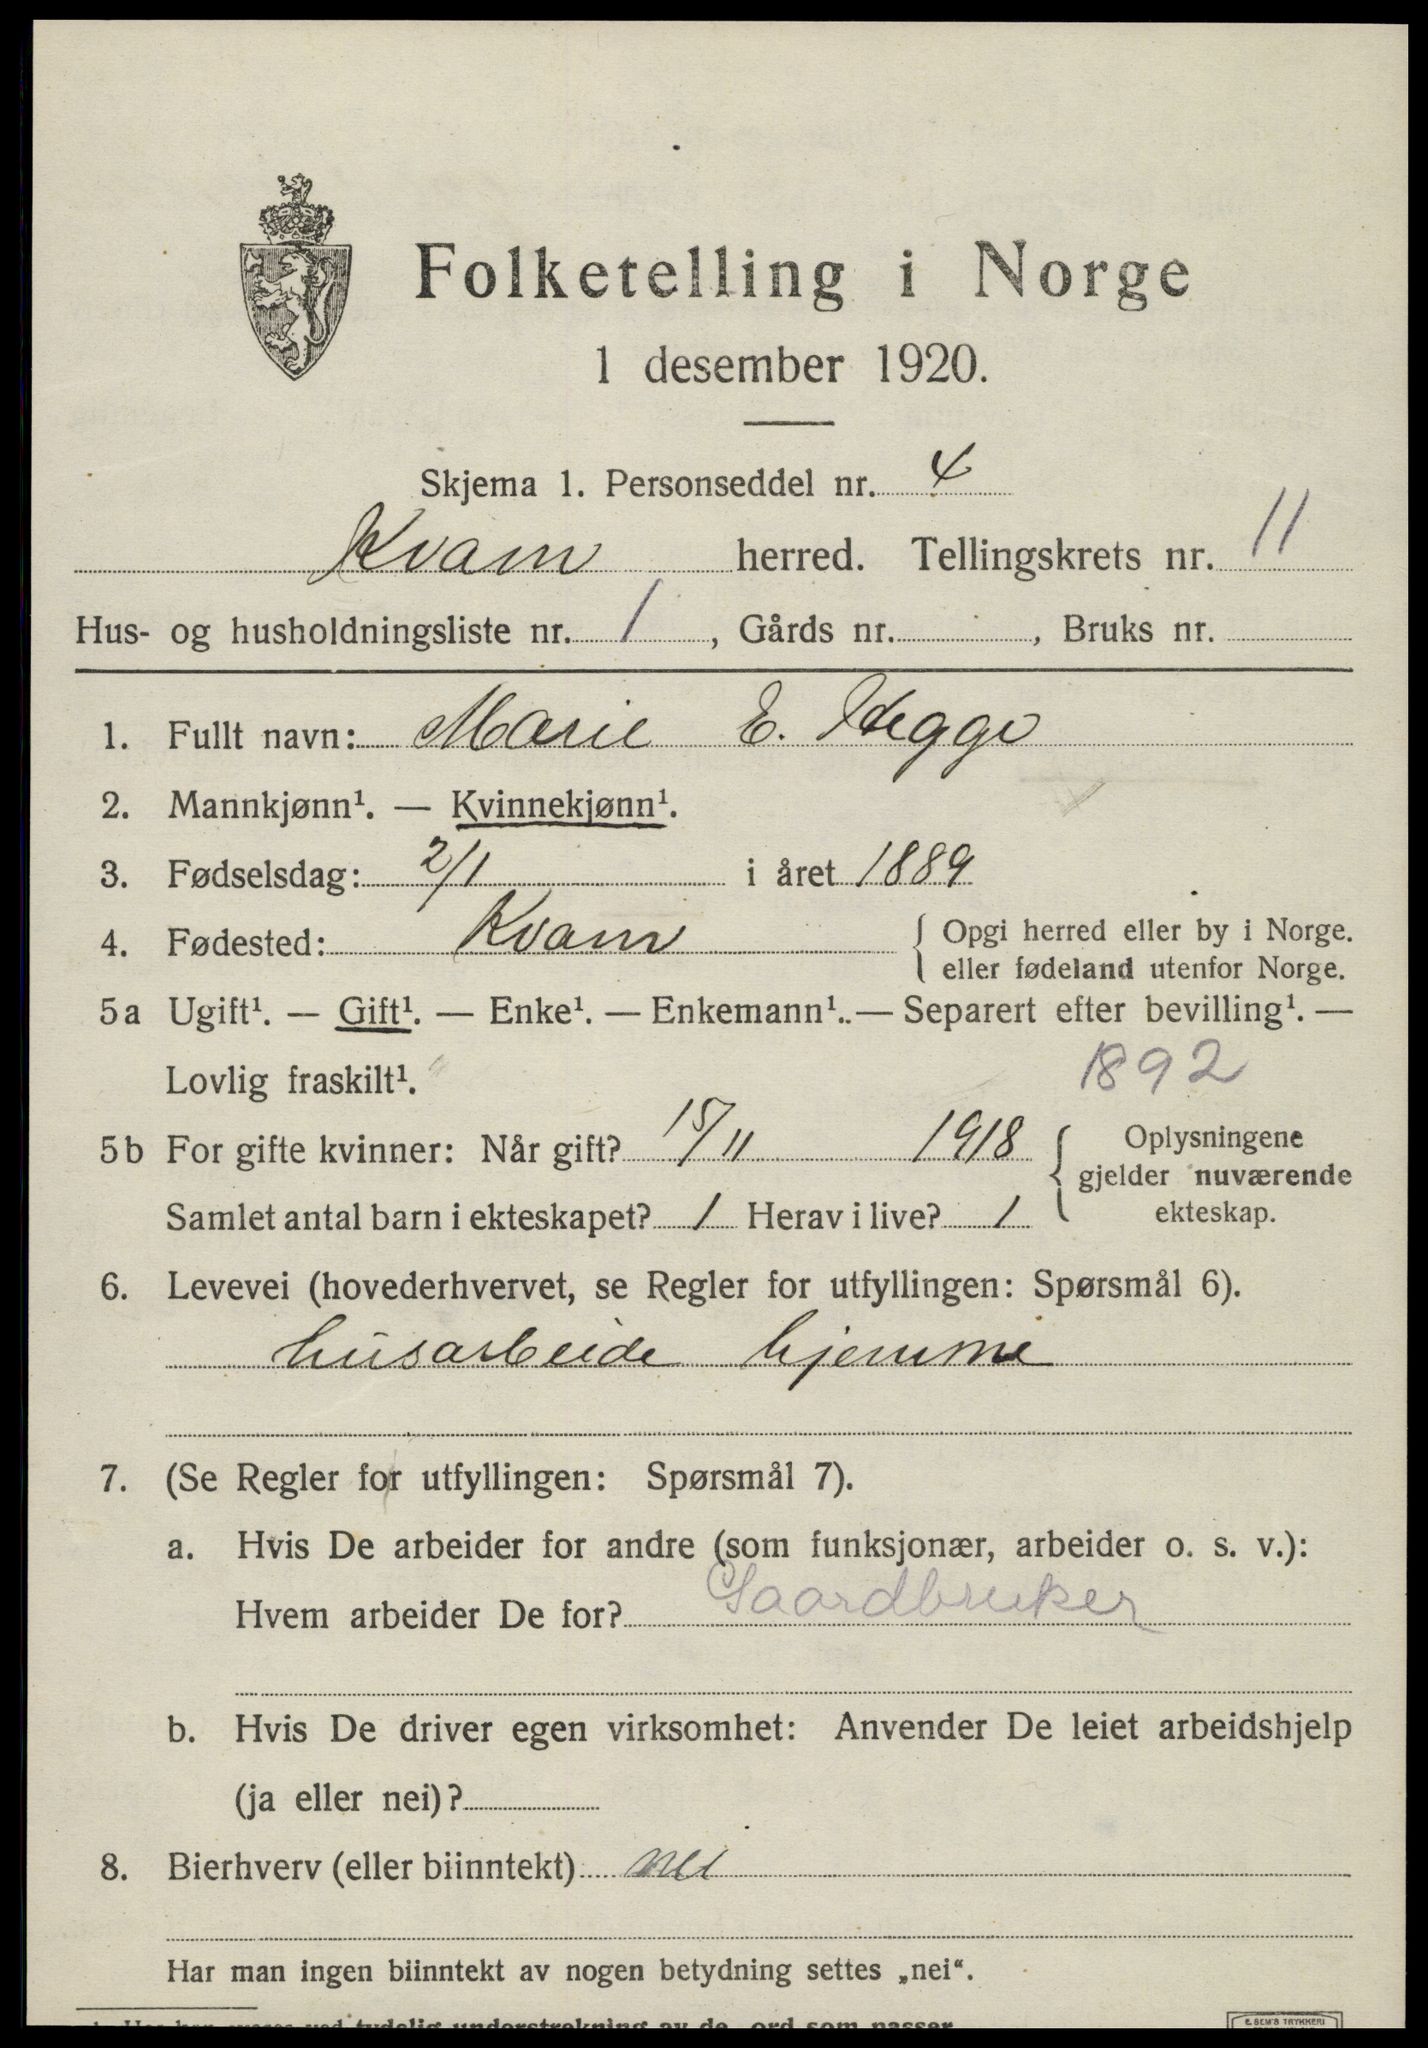 Folketelling i Norge
1 desember 1920.
Skjema 1. Personseddel nr. 4
Kvam herred. Tellingskrets nr. 11
Hus- og husholdningsliste nr. 1, Gårds nr. , Bruks nr.
1. Fullt navn: Marie E. Hegge
2. Mannkjønn¹. — Kvinnekjønn¹.
3. Fødselsdag: 2/1 i året 1889
4. Fødested: Kvam { Opgi herred eller by i Norge.
eller fødeland utenfor Norge.
5a Ugift¹. — Gift¹. — Enke¹. — Enkemann¹. — Separert efter bevilling¹. —
Lovlig fraskilt¹. 1892
5b For gifte kvinner: Når gift? 15/11 1918 { Oplysningene
gjelder nuværende
Samlet antal barn i ekteskapet? 1 Herav i live? 1 ekteskap.
6. Levevei (hovederhvervet, se Regler for utfyllingen: Spørsmål 6).
husarbeide hjemme
7. (Se Regler for utfyllingen: Spørsmål 7).
a. Hvis De arbeider for andre (som funksjonær, arbeider o. s. v.):
Hvem arbeider De for? Gaardbruker
b. Hvis De driver egen virksomhet: Anvender De leiet arbeidshjelp
(ja eller nei)?
8. Bierhverv (eller biinntekt) nei
Har man ingen biinntekt av nogen betydning settes „nei“.
E. SEM'S TRYKKERI